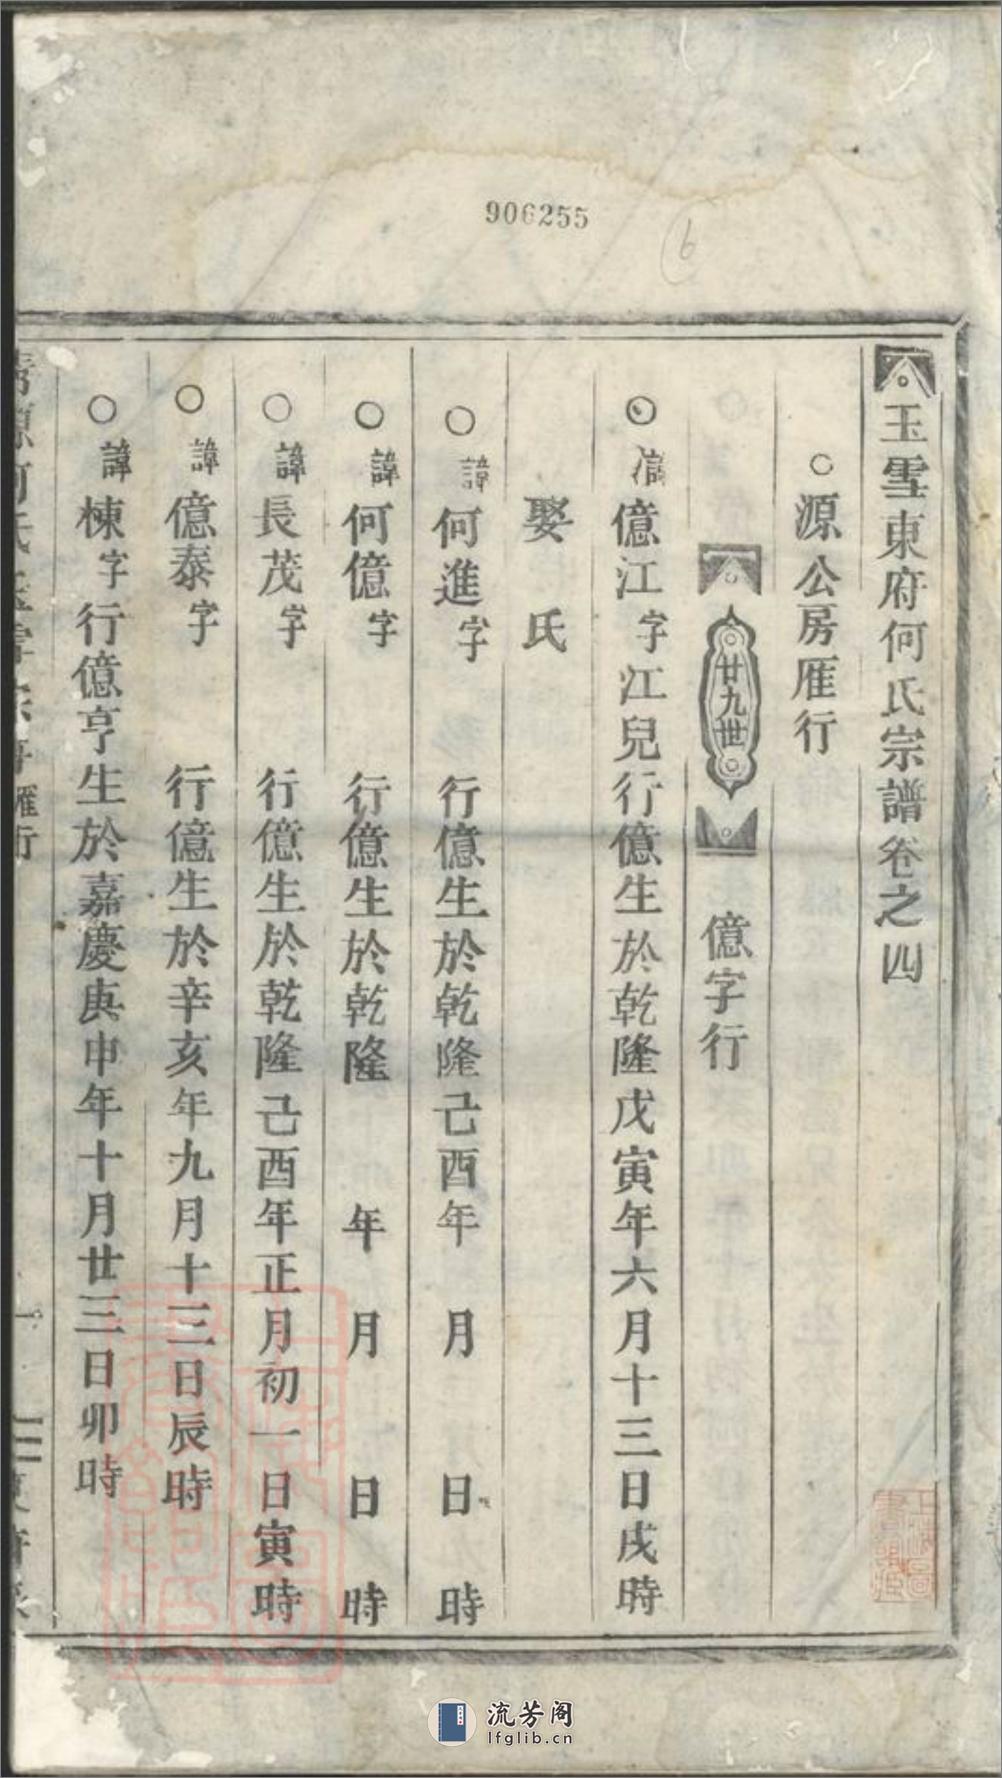 906255
6
玉雪東府何氏宗譜卷之四
源公房雁行
廿九世 億字行
諱億江字江兒行億生於乾隆戊寅年六月十三日戌時
娶 氏
諱何進字 行億生於乾隆己酉年 月 日 時
諱何億字 行億生於乾隆 年 月 日 時
諱長茂字 行億生於乾隆己酉年正月初一日寅時
諱億泰字 行億生於辛亥年九月十三日辰時
諱棟字行億亨生於嘉慶庚申年十月廿三日卯時
流芳阁
lfglib.cn